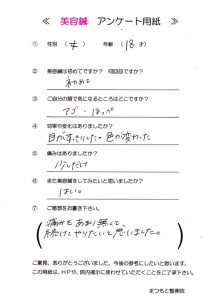 ≪ 美容鍼 アンケート用紙 ≫
① 性別 ( 女 ) 年齢 ( 18 才 )
② 美容鍼は初めてですか? 何回目ですか?
初めて
③ ご自分の顔で気になるところはどこですか?
アゴ・ほっぺ
④ 効果や変化はありましたか?
目がすっきりした 色が変わった
⑤ 痛みはありましたか?
1ヶ所だけ
⑥ また美容鍼をしてみたいと思いましたか?
はい。
⑦ ご感想をお書き下さい。
痛みもあまり無くて、
続けてやりたいと思いました。
ご意見、ありがとうございました。今後の参考にしたいと思います。
この用紙は、HPや、院内掲示に使わせていただくことをご了承下さい。
まつもと整骨院